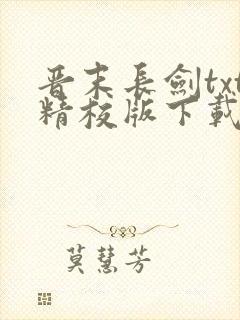 晋末长剑txt
精校版下载
莫慧芳